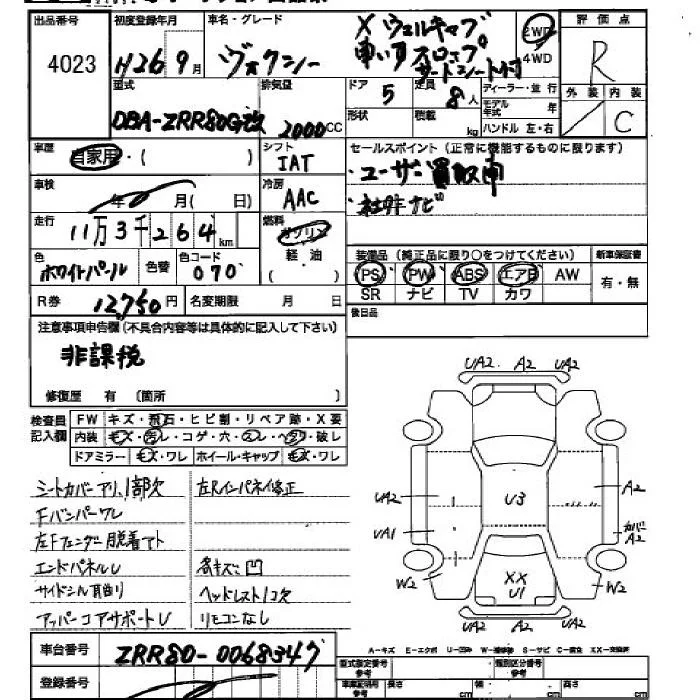 出品番号 初度登録年月 車名・グレード 評価点
4023 H26 9月 ヴォクシー X ウェルキャブ
車いす スロープ
サードシート付
2WD
4WD
R
型式 排気量 ドア 定員 ディーラー・並行 外装 内装
DBA-ZRR80G改 2000CC 5 8人 モデル年式 年
形状 積載 kg ハンドル 左・右 C
車歴 自家用・( ) シフト セールスポイント(正常に機能するものに限ります)
IAT ・ユーザー買取車
車検 年 月( 日) 冷房 AAC ・社外ナビ
走行 11万3千264km 燃料 ガソリン
色 色替 色コード 軽油 装備品(純正品に限り○をつけてください) 新車保証書
ホワイトパール 070 ( ) PS PW ABS エアB AW 有・無
SR ナビ TV カワ
R券 12750円 名変期限 月 日 後日品
注意事項申告欄(不具合内容等は具体的に記入して下さい)
非課税
修復歴 有 〔箇所
検査員 FW キズ・飛石・ヒビ割・リペア跡・X要
記入欄 内装 キズ・汚レ・コゲ・穴・スレ・ヘタリ・破レ
ドアミラー キズ・ワレ ホイール・キャップ キズ・ワレ
シートカバーアリ、1部欠 左Rインパネイ修正
Fバンパーワレ
左Fフェンダー脱着アト
エンドパネルU 各キズ凹
サイドシル頁曲り ヘッドレスト1コ欠
アッパーコアサポートU リモコンなし
UA2 A2 UA2
UA2 U3 A2
UA1 カバーA2
W2 XX U1 W2
UA2 A2
A-キズ E-エクボ U-凹み W-補修跡 S-サビ C-腐食 XX-交換済
車台番号 ZRR80-0068347
型式指定番号 参考 類別区分番号 参考
登録番号 車庫証明用 参考 長さ cm 幅 cm 高さ cm